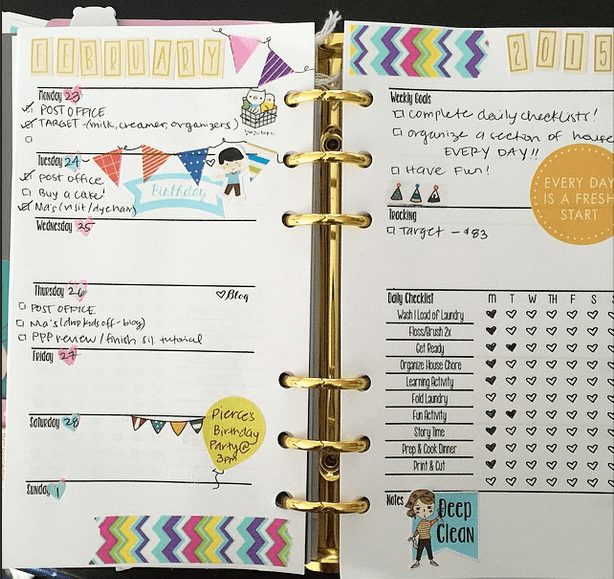 FEBRUARY
Monday 23
POST OFFICE
TARGET -(milk, creamer, organizers)
Tuesday 24
Post office
Buy a cake!
Birthday
Wednesday 25
Thursday 26
Blog
POST OFFICE
Ma's (drop kids off - blog)
PPP review / finish sil. tutorial
Friday 27
Saturday 28
Pierce's
Birthday
Party @
3pm
Sunday 1
2015
Weekly Goals
complete daily checklists!
organize a section of house
EVERY DAY!!
Have Fun!
EVERY DAY
IS A FRESH
START
Tracking
Target - $83
Daily Checklist M T W TH F S S
Wash 1 Load of Laundry
Floss/Brush 2x
Get Ready
Organize House Chore
Learning Activity
Fold Laundry
Fun Activity
Story Time
Prep & Cook Dinner
Print & Cut
Notes
Deep
Clean